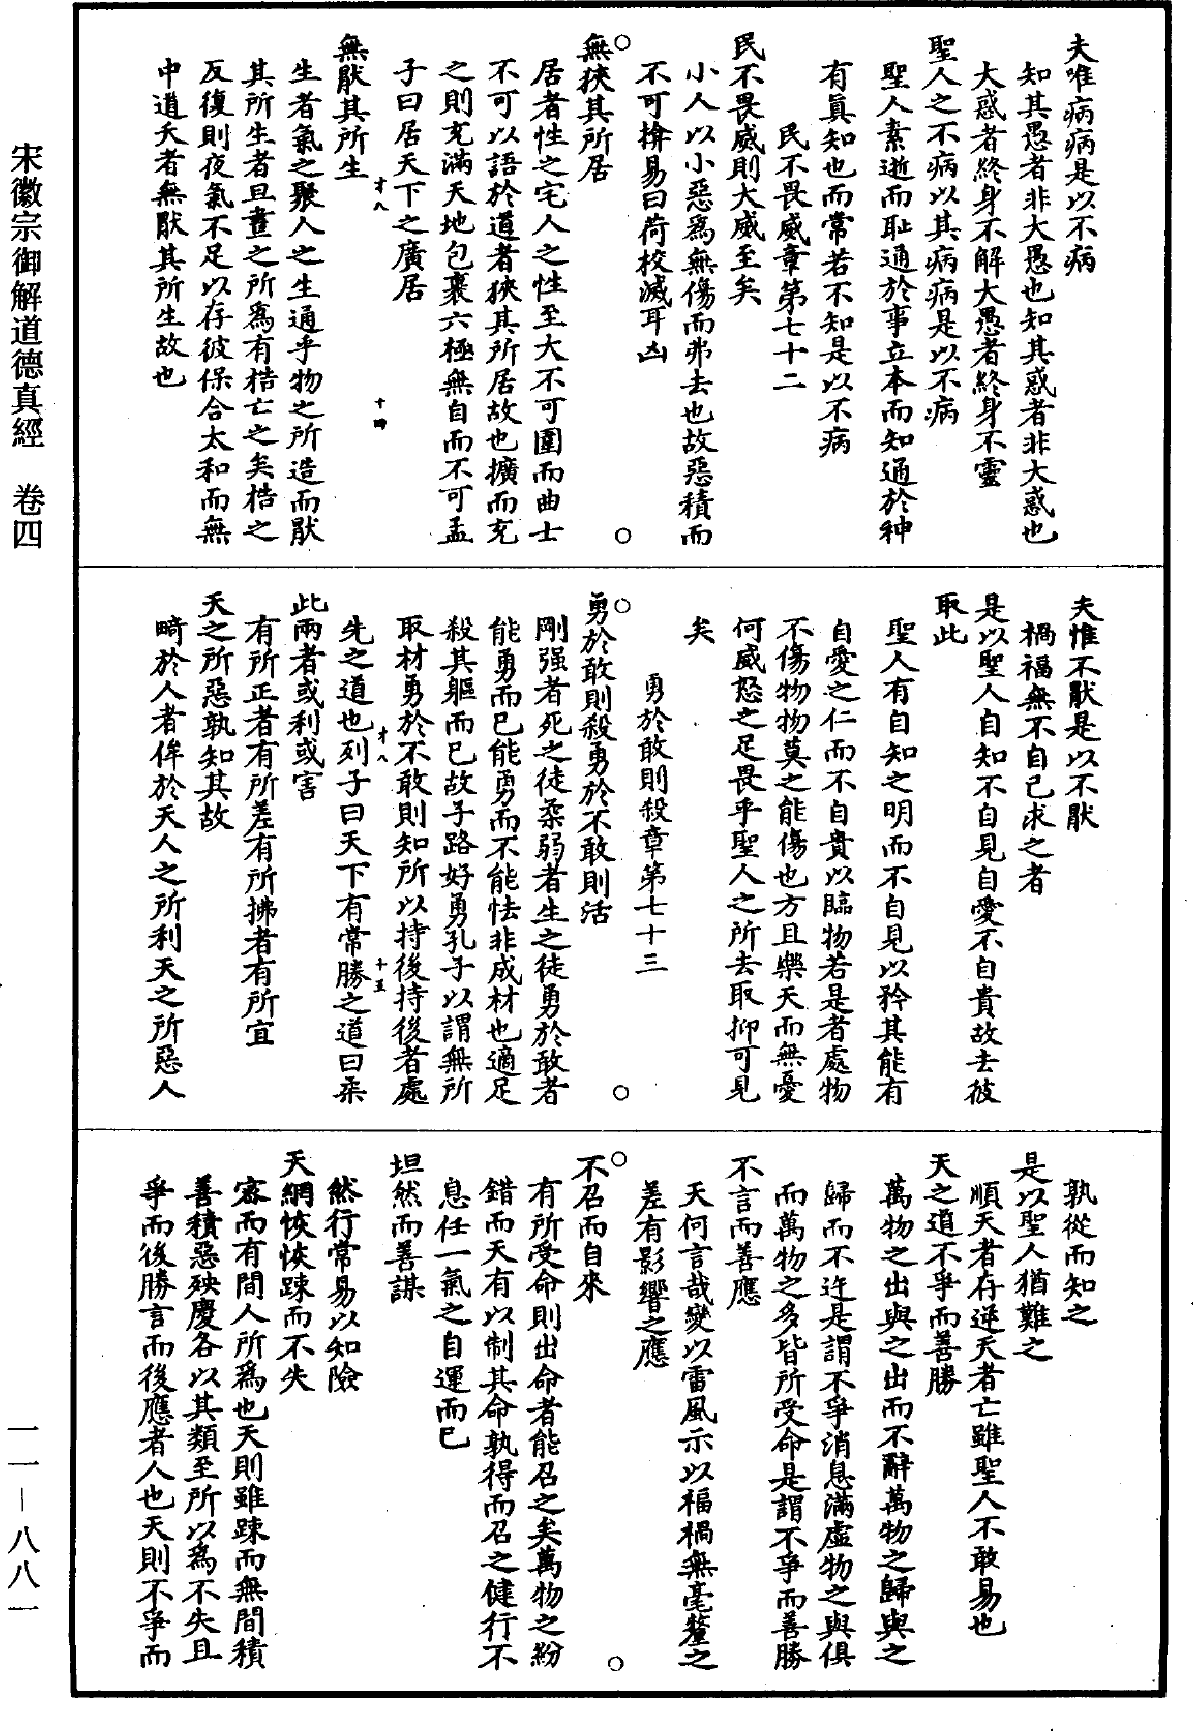 夫唯病病是以不病
知其愚者非大愚也知其惑者非大惑也
大惑者終身不解大愚者終身不靈
聖人之不病以其病病是以不病
聖人素逝而恥通於事立本而知通於神
有眞知也而常若不知是以不病
民不畏威章第七十二
民不畏威則大威至矣
小人以小惡爲無傷而弗去也故惡積而
不可揜易曰荷校滅耳凶
無狹其所居
居者性之宅人之性至大不可圍而曲士
不可以語於道者狹其所居故也擴而充
之則充滿天地包裹六極無自而不可孟
子曰居天下之廣居
才八
十四
無厭其所生
生者氣之聚人之生通乎物之所造而厭
其所生者旦晝之所爲有梏亡之矣梏之
反復則夜氣不足以存彼保合太和而無
中道夭者無厭其所生故也
夫惟不厭是以不厭
禍福無不自己求之者
是以聖人自知不自見自愛不自貴故去彼
取此
聖人有自知之明而不自見以矜其能有
自愛之仁而不自貴以臨物若是者處物
不傷物物莫之能傷也方且樂天而無憂
何威怒之足畏乎聖人之所去取抑可見
矣
勇於敢則殺章第七十三
勇於敢則殺勇於不敢則活
剛强者死之徒柔弱者生之徒勇於敢者
能勇而已能勇而不能怯非成材也適足
殺其軀而已故子路好勇孔子以謂無所
取材勇於不敢則知所以持後持後者處
才八
十五
先之道也列子曰天下有常勝之道曰柔
此兩者或利或害
有所正者有所差有所拂者有所宜
天之所惡孰知其故
畸於人者侔於天人之所利天之所惡人
孰從而知之
是以聖人猶難之
順天者存逆天者亡雖聖人不敢易也
天之道不爭而善勝
萬物之出與之出而不辭萬物之歸與之
歸而不迕是謂不爭消息滿虛物之與俱
而萬物之多皆所受命是謂不爭而善勝
不言而善應
天何言哉變以雷風示以福禍無毫釐之
差有影響之應
不召而自來
有所受命則出命者能召之矣萬物之紛
錯而天有以制其命孰得而召之健行不
息任一氣之自運而已
坦然而善謀
然行常易以知險
天網恢恢踈而不失
密而有間人所爲也天則雖踈而無間積
善積惡殃慶各以其類至所以爲不失且
爭而後勝言而後應者人也天則不爭而
宋徽宗御解道德真經 卷四
一一—八八一